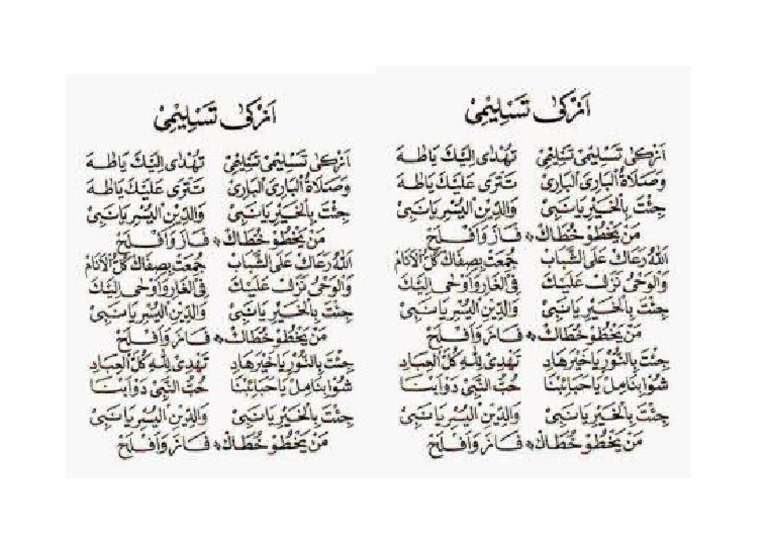 اَزْكَى تَسْلِيْمِيْ
اَزْكٰى تَسْلِيْمِيْ تَبْلِغِيْ تُهْدٰى اِلَيْكَ يَاطٰهَ
وَصَلَاةُ الْبَارِيْ الْبَارِيْ تَتَرٰى عَلَيْكَ يَاطٰهَ
جِئْتَ بِالْخَيْرِ يَانَبِيْ وَالدِّيْنِ الْيُسْرِ يَانَبِيْ
مَنْ يَخْطُوْ خُطَاكْ * فَازَ وَاَفْلَحْ
اَللهُ رَعَاكَ عَلَى الشَّبَابْ جُمِعَتْ بِصِفَاكَ كُلُّ الْاَنَامْ
وَالْوَحْيُ نَزَلْ عَلَيْكَ فِى الْغَارِ وَاَوْحٰى اِلَيْكَ
جِئْتَ بِالْخَيْرِ يَانَبِيْ وَالدِّيْنِ الْيُسْرِ يَانَبِيْ
مَنْ يَخْطُوْ خُطَاكْ * فَازَ وَاَفْلَحْ
جِئْتَ بِالنُّوْرِ يَاخَيْرَ هَادِ تَهْدِيْ لِلّٰهِ كُلَّ الْعِبَادِ
حُبُّ النَّبِيْ دَوَاءُنَا
جِئْتَ بِالْخَيْرِ يَانَبِيْ وَالدِّيْنِ الْيُسْرِ يَانَبِيْ
مَنْ يَخْطُوْ خُطَاكْ * فَازَ وَاَفْلَحْ
اَزْكَى تَسْلِيْمِيْ
اَزْكٰى تَسْلِيْمِيْ تَبْلِغِيْ تُهْدٰى اِلَيْكَ يَاطٰهَ
وَصَلَاةُ الْبَارِيْ الْبَارِيْ تَتَرٰى عَلَيْكَ يَاطٰهَ
جِئْتَ بِالْخَيْرِ يَانَبِيْ وَالدِّيْنِ الْيُسْرِ يَانَبِيْ
مَنْ يَخْطُوْ خُطَاكْ * فَازَ وَاَفْلَحْ
اَللهُ رَعَاكَ عَلَى الشَّبَابْ جُمِعَتْ بِصِفَاكَ كُلُّ الْاَنَامْ
وَالْوَحْيُ نَزَلْ عَلَيْكَ فِى الْغَارِ وَاَوْحٰى اِلَيْكَ
جِئْتَ بِالْخَيْرِ يَانَبِيْ وَالدِّيْنِ الْيُسْرِ يَانَبِيْ
مَنْ يَخْطُوْ خُطَاكْ * فَازَ وَاَفْلَحْ
جِئْتَ بِالنُّوْرِ يَاخَيْرَ هَادِ تَهْدِيْ لِلّٰهِ كُلَّ الْعِبَادِ
حُبُّ النَّبِيْ دَوَاءُنَا
جِئْتَ بِالْخَيْرِ يَانَبِيْ وَالدِّيْنِ الْيُسْرِ يَانَبِيْ
مَنْ يَخْطُوْ خُطَاكْ * فَازَ وَاَفْلَحْ